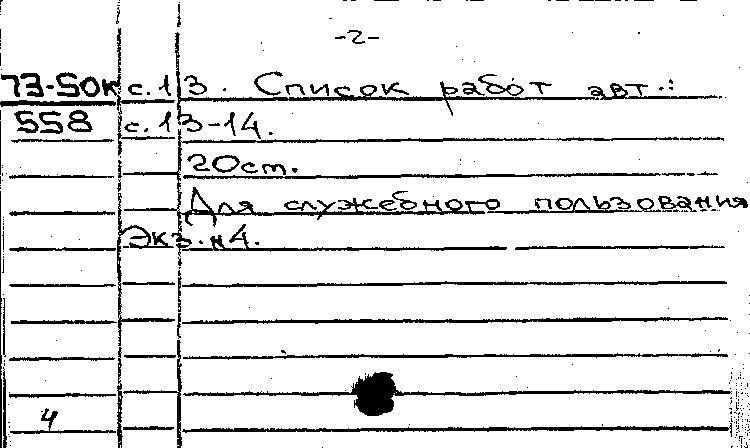 -2-
73-50к с.13. Список работ авт.:
558 с.13-14.
20см.
Для служебного пользования
Экз.н4.
4